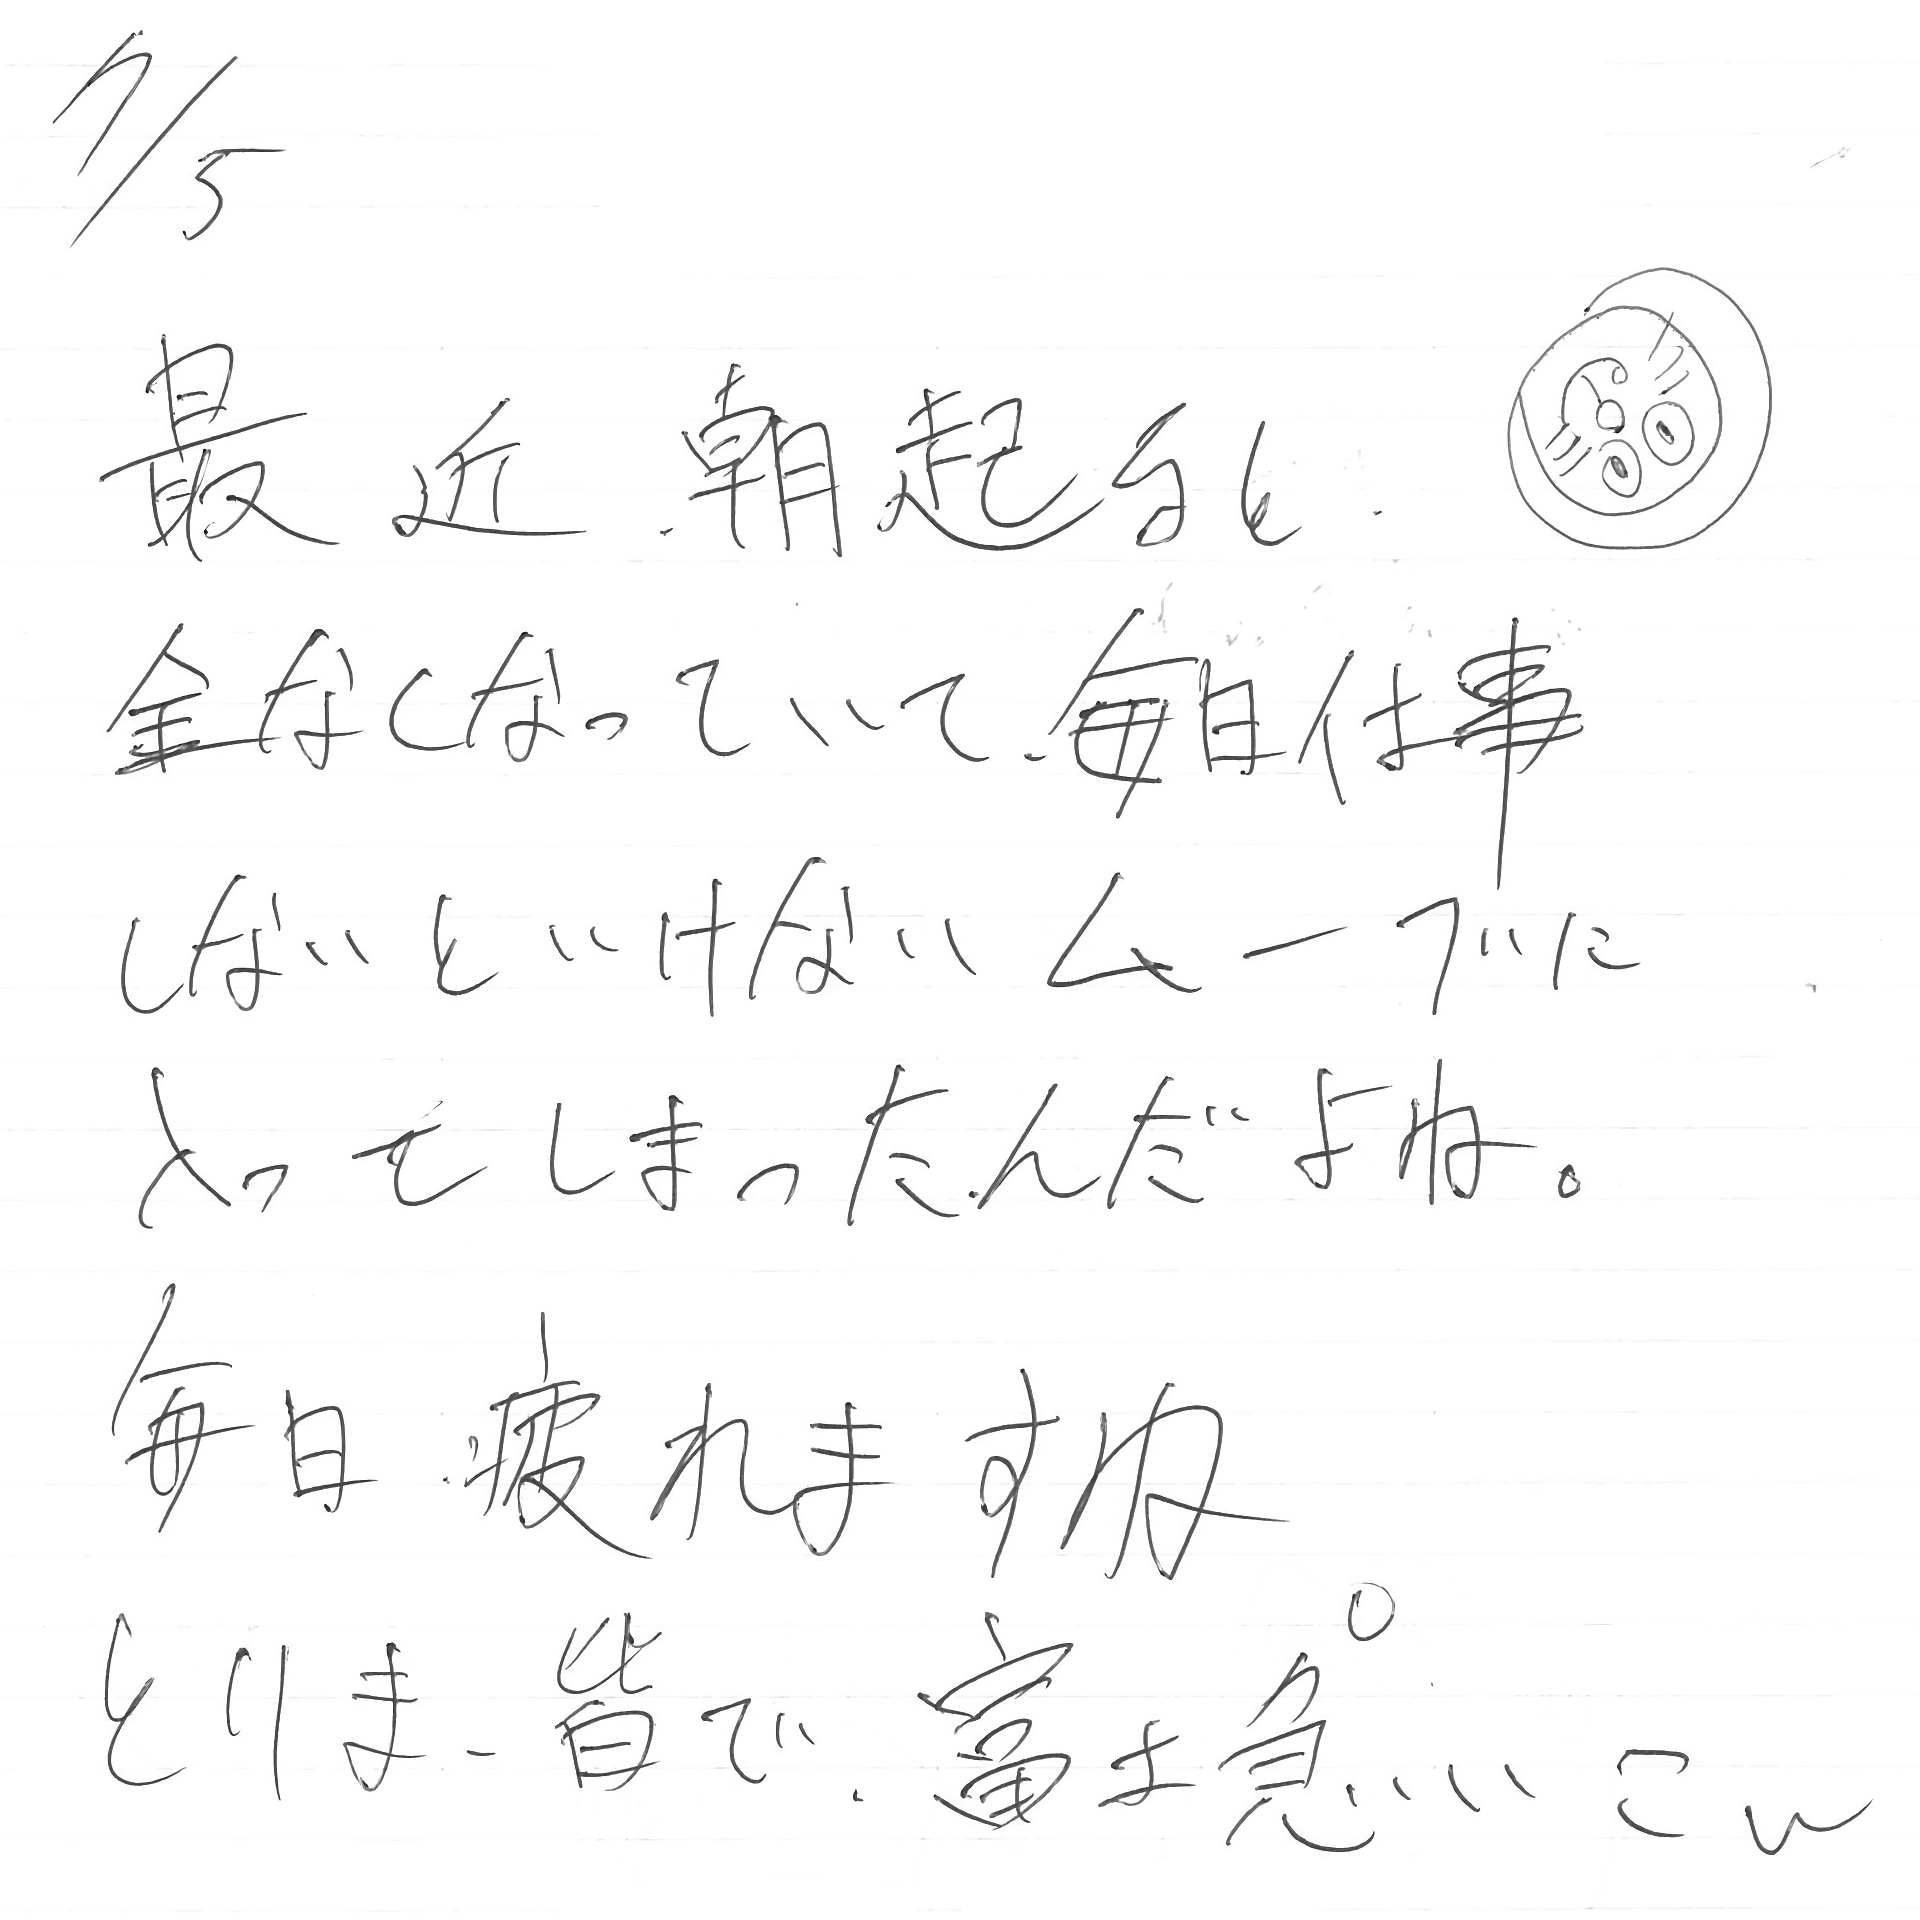 7/5
最近、朝起るし、
金なくなっていて、毎日仕事
しないといけないムーブに
とってしまったんだよね。
毎日、疲れますね。
とりま、皆で、富士急いこん